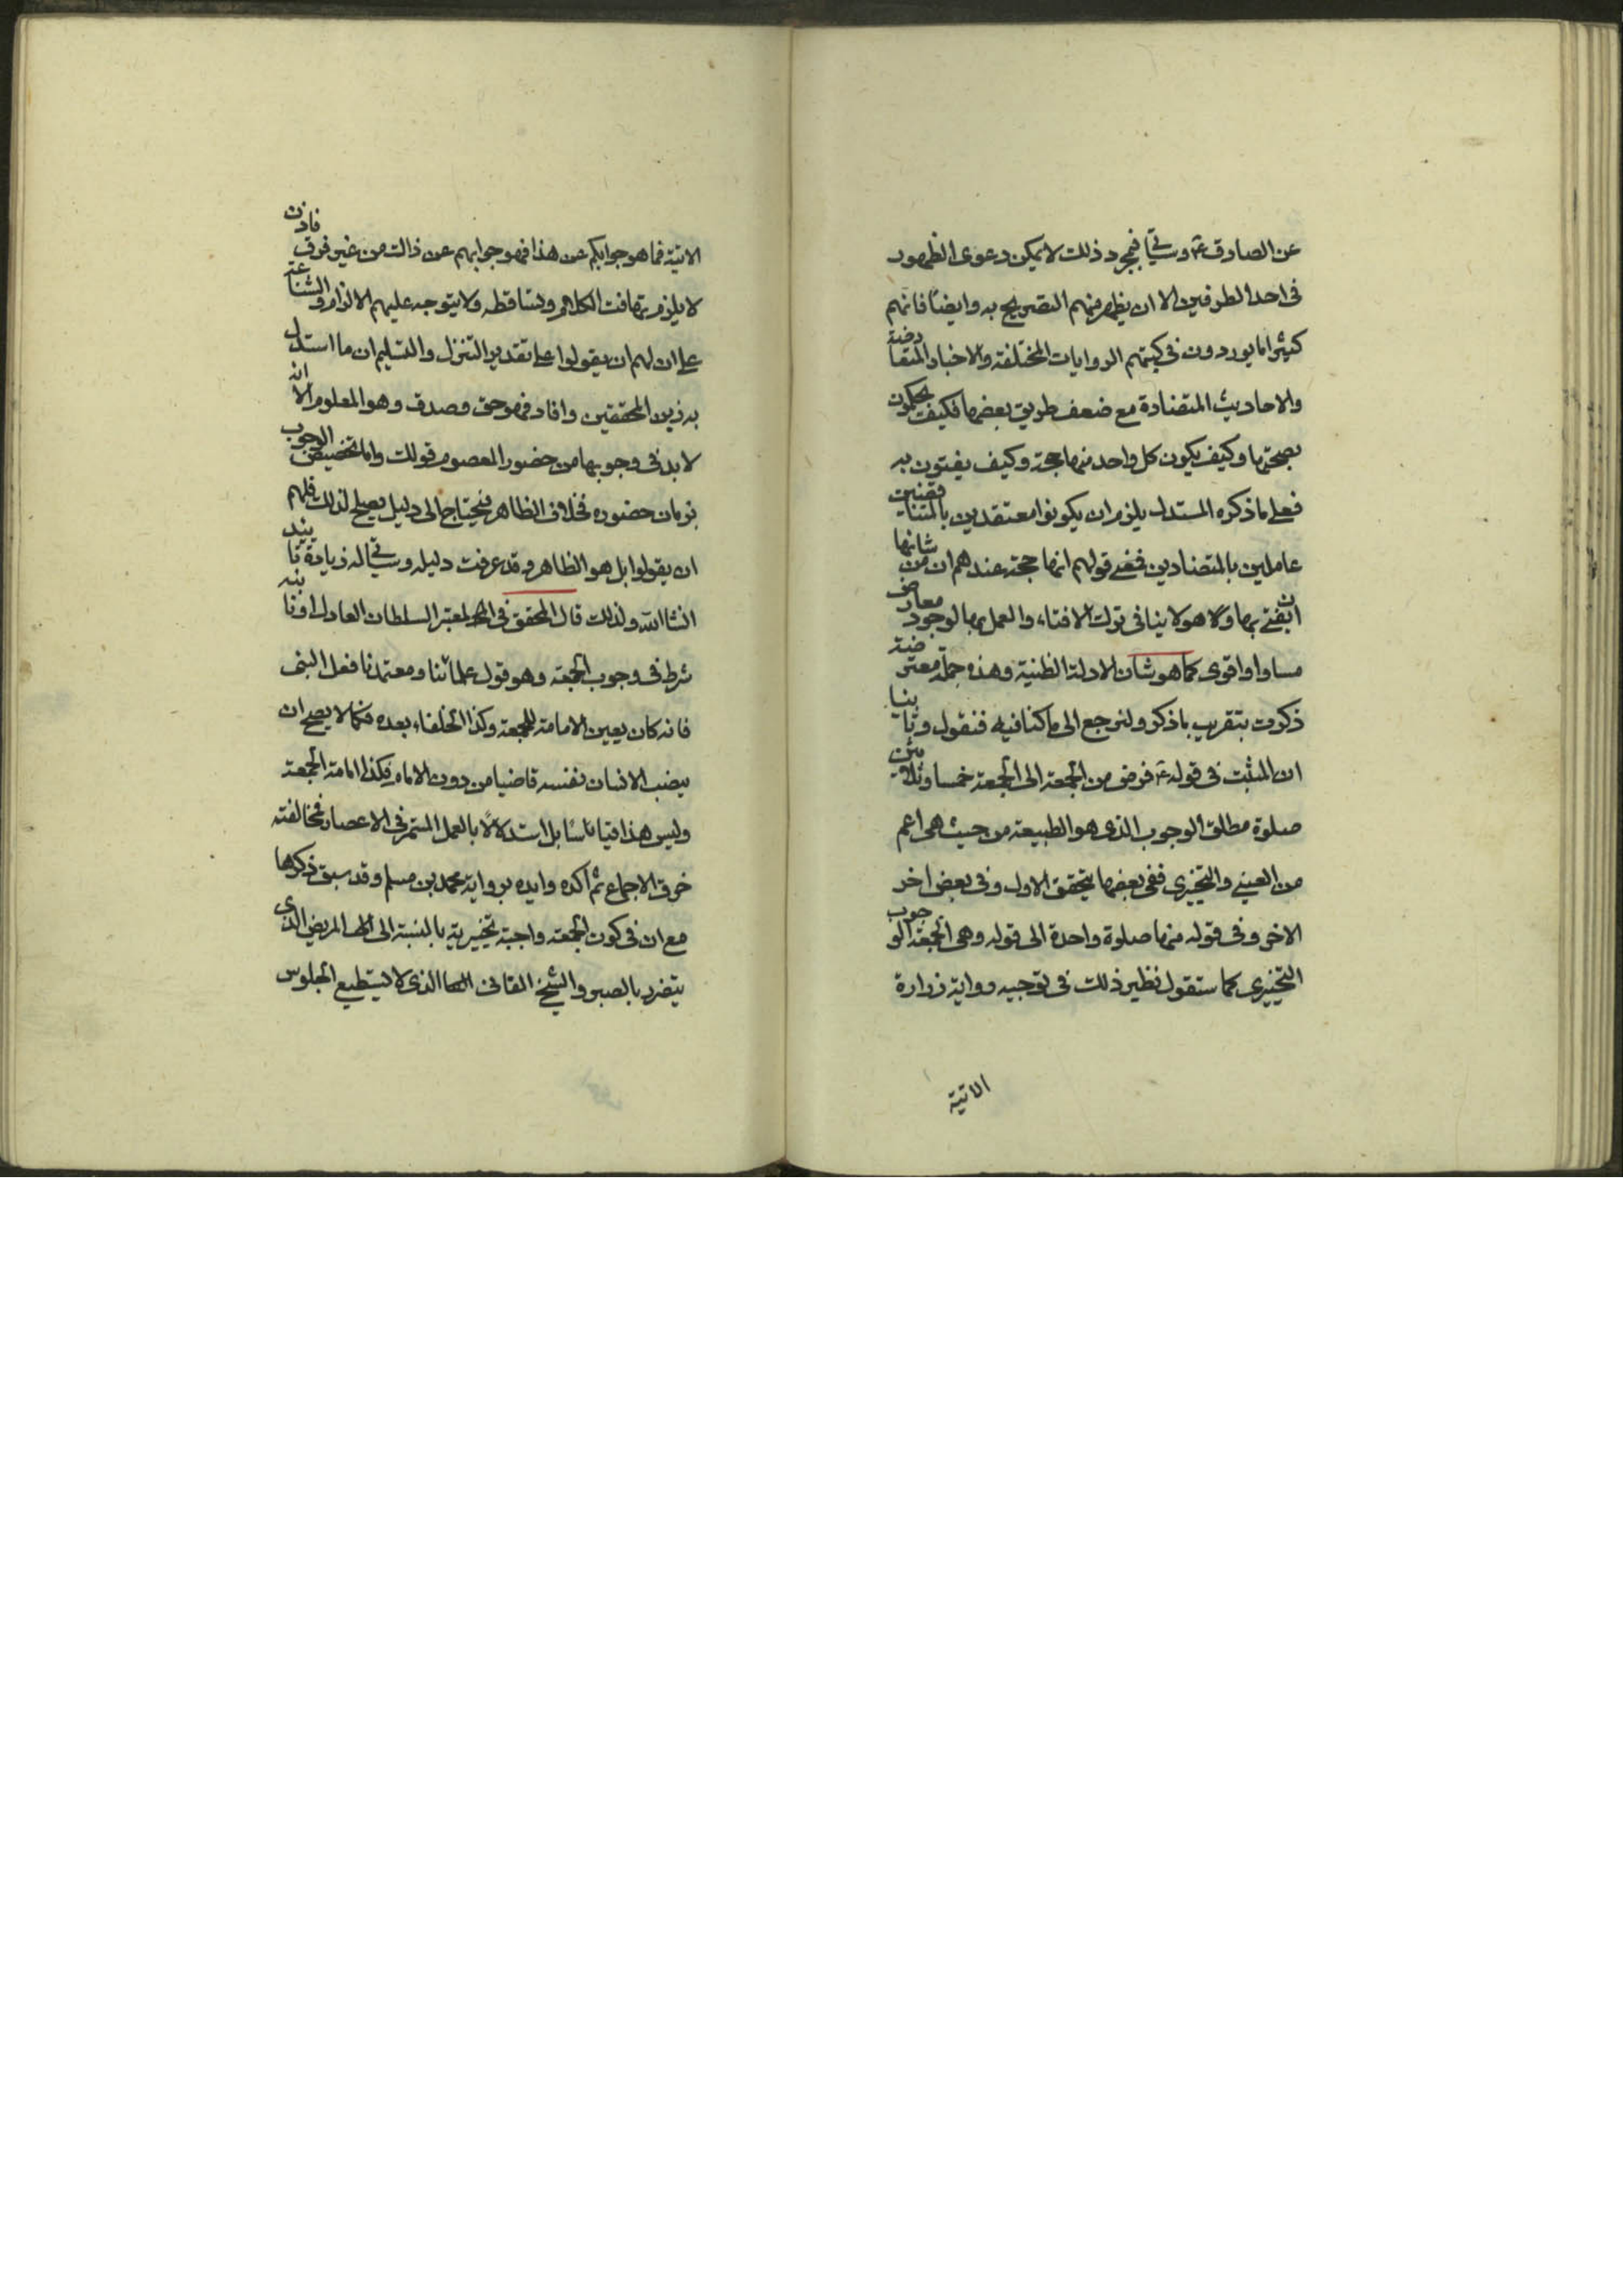 عن الصادق ع وسيأتي فبمجرد ذلك لا يمكن دعوى الظهور
فى احد الطرفين الا ان يظهر منهم التصريح به وايضًا فانهم
كثيرا ما يوردون فى كتبهم الروايات المختلفة والاخبار المتعارضة
والاحاديث المتضادة مع ضعف طريق بعضها فكيف يحكمون
بصحتها وكيف يكون كل واحد منها حجة وكيف يفتون به
فعلى ما ذكره المستدل يلزم ان يكونوا معتقدين بالمتناقضين
عاملين بالمتضادين فمعنى قولهم انها حجة عندهم ان من شانها
ان يفتى بها وهو لا ينافى ترك الافتاء والعمل بها لوجود معارض
مساو او اقوى كما هو شان الادلة الظنية وهذه جملة معترضة
ذكرت بتقريب ما ذكر ولنرجع الى ما كنا فيه فنقول وثانيا
ان المثبت فى قوله ع فرض من الجمعة الى الجمعة خمسا وثلاثين
صلوة مطلق الوجوب الذى هو الطبيعة من حيث هى اعم
من العينى والتخييرى ففى بعضها يتحقق الاول وفى بعض اخر
الاخر وفى قوله منها صلوة واحدة الى قوله وهى الجمعة الوجوب
التخييرى كما ستقول نظير ذلك فى توجيه رواية زرارة
الاتية
الاتية فما هو جوابكم عن هذا فهو جوابهم عن ذالك من غير فرق فاذن
لا يلزم تهافت الكلام وتساقطه ولا يتوجه عليهم الالزام والشناعة
على ان لهم ان يقولوا على تقدير التنزل والتسليم ان ما استدل
به زين المحققين وافاد فهو حق وصدق وهو المعلوم الا انه
لا بد فى وجوبها من حضور المعصوم قولك واما تخصيص الوجوب
بزمان حضوره فخلاف الظاهر فيحتاج الى دليل يصلح لذلك فلهم
ان يقولوا بل هو الظاهر وقد عرفت دليله وسيأتي له زيادة تاييد
انشا الله ولذلك قال المحقق فى المعتبر السلطان العادل او نائبه
شرط فى وجوب الجمعة وهو قول علمائنا ومعتمدنا فعل النبى
فانه كان يعين لامامة الجمعة وكذا الخلفاء بعده فكما لا يصح ان
ينصب الانسان نفسه قاضيا من دون الامام فكذا امامة الجمعة
وليس هذا قياسًا بل استدلالًا بالعمل المستمر فى الاعصار فمخالفته
خرق الاجماع ثم اكده وايده برواية محمد بن مسلم وقد سبق ذكرها
مع ان فى كون الجمعة واجبة تخييرية بالنسبة الى المريض الذى
يتضرر بالصبر والشيخ الفانى الذى لا يستطيع الجلوس